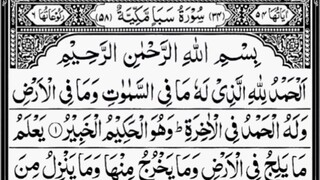 اٰیَاتُهَا ۵۴ (۳۴) سُوْرَةُ سَبَاٍ مَكِّیَّةٌ (۵۸) رُكُوْعَاتُهَا ۶
بِسْمِ اللّٰهِ الرَّحْمٰنِ الرَّحِیْمِ
اَلْحَمْدُ لِلّٰهِ الَّذِیْ لَهٗ مَا فِی السَّمٰوٰتِ وَمَا فِی الْاَرْضِ
وَلَهُ الْحَمْدُ فِی الْاٰخِرَةِ ؕ وَهُوَ الْحَكِیْمُ الْخَبِیْرُ ۱ یَعْلَمُ
مَا یَلِجُ فِی الْاَرْضِ وَمَا یَخْرُجُ مِنْهَا وَمَا یَنْزِلُ مِنَ